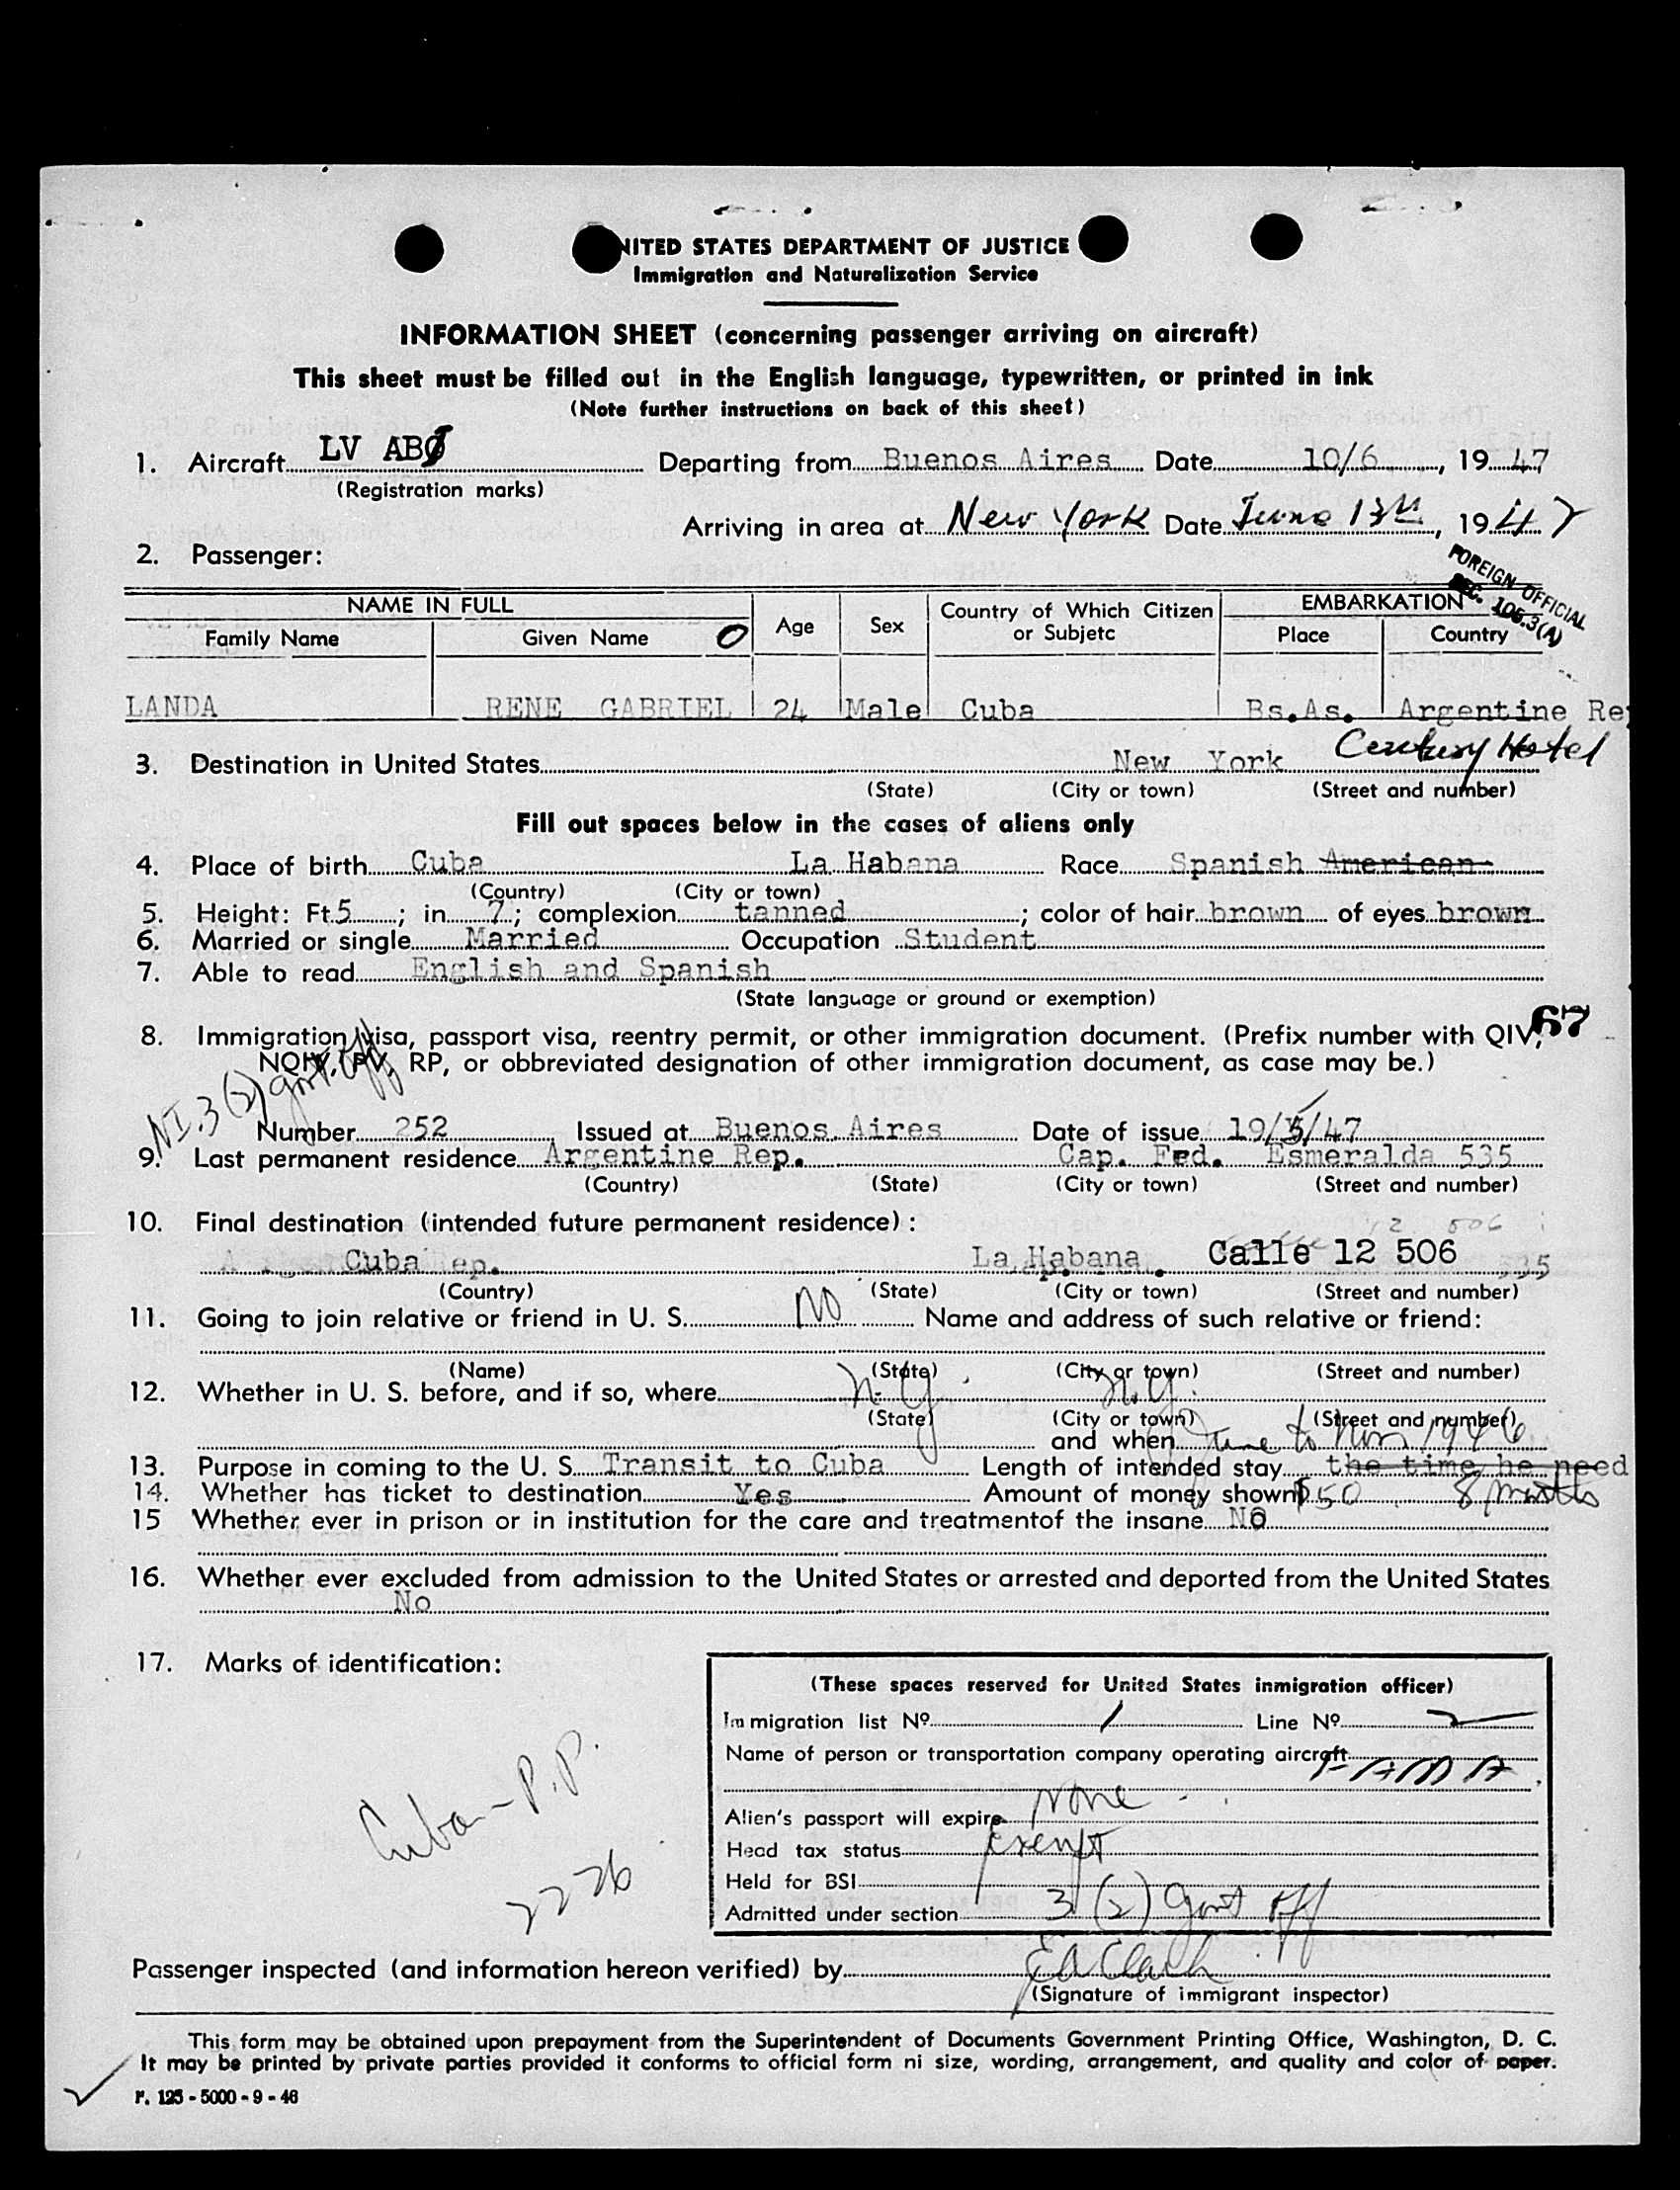 UNITED STATES DEPARTMENT OF JUSTICE
Immigration and Naturalization Service
INFORMATION SHEET (concerning passenger arriving on aircraft)
This sheet must be filled out in the English language, typewritten, or printed in ink
(Note further instructions on back of this sheet)
1. Aircraft LV AB Departing from Buenos Aires Date 10/6, 19 47
(Registration marks)
Arriving in area at New York Date June 13th, 1947
2. Passenger:
FOREIGN OFFICIAL
SEC. 105.3(A)
NAME IN FULL Age Sex Country of Which Citizen or Subjetc EMBARKATION
Family Name Given Name O Place Country
LANDA RENE GABRIEL 24 Male Cuba Bs.As. Argentine Re
3. Destination in United States New York Century Hotel
(State) (City or town) (Street and number)
Fill out spaces below in the cases of aliens only
4. Place of birth Cuba La Habana Race Spanish American
(Country) (City or town)
5. Height: Ft. 5; in 7; complexion tanned; color of hair brown of eyes brown
6. Married or single Married Occupation Student
7. Able to read English and Spanish
(State language or ground or exemption)
8. Immigration visa, passport visa, reentry permit, or other immigration document. (Prefix number with QIV, 67
NQIV, PV, RP, or obbreviated designation of other immigration document, as case may be.)
NI. 3(2) govt off
Number 252 Issued at Buenos Aires Date of issue 19/5/47
9. Last permanent residence Argentine Rep. Cap. Fed. Esmeralda 535
(Country) (State) (City or town) (Street and number)
10. Final destination (intended future permanent residence):
12 506
Cuba ep. La Habana Calle 12 506 535
(Country) (State) (City or town) (Street and number)
11. Going to join relative or friend in U. S. NO Name and address of such relative or friend:
(Name) (State) (City or town) (Street and number)
12. Whether in U. S. before, and if so, where N.Y. N.Y.
(State) (City or town) (Street and number)
and when June to Nov 1946
13. Purpose in coming to the U. S. Transit to Cuba Length of intended stay the time he need
14. Whether has ticket to destination Yes Amount of money shown $50 8 months
15 Whether ever in prison or in institution for the care and treatmentof the insane No
16. Whether ever excluded from admission to the United States or arrested and deported from the United States
No
17. Marks of identification:
Cuba - P.P.
2226
(These spaces reserved for United States inmigration officer)
Immigration list Nº 1 Line Nº 2
Name of person or transportation company operating aircraft FAMA
Alien's passport will expire None
Head tax status Exempt
Held for BSI
Admitted under section 3(2) Govt Off
Passenger inspected (and information hereon verified) by Ed Clark
(Signature of immigrant inspector)
This form may be obtained upon prepayment from the Superintendent of Documents Government Printing Office, Washington, D. C.
It may be printed by private parties provided it conforms to official form ni size, wording, arrangement, and quality and color of paper.
F. 125 - 5000 - 9 - 46